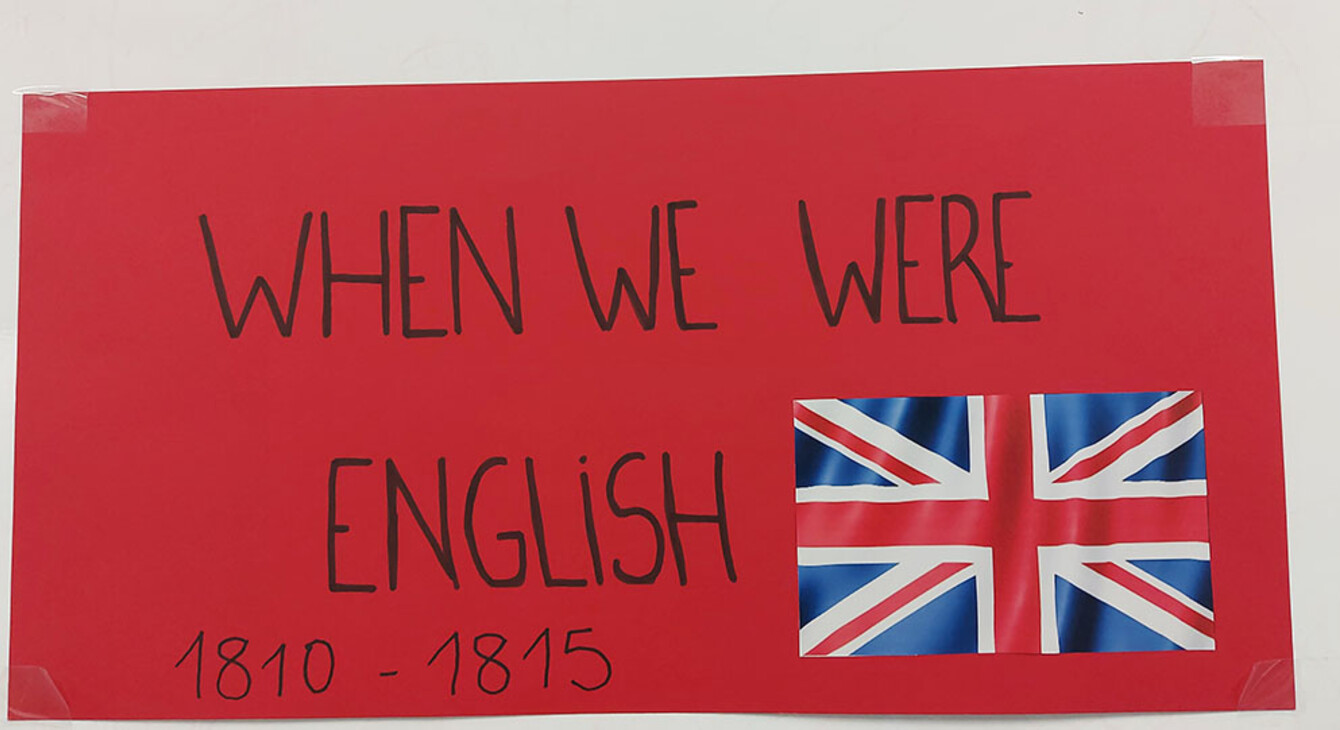 WHEN WE WERE
ENGLiSH
1810 - 1815